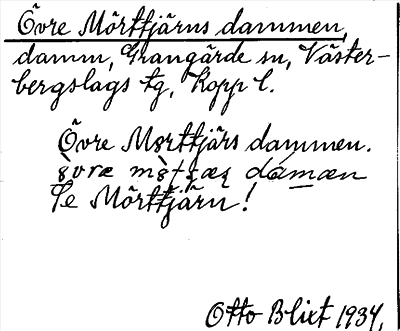 Övre Mörttjärns dammen,
damm, Grangärde sn, Väster-
bergslags tg, Kopp l.
Övre Mörttjärs dammen.
dammæn
Se Mörttjärn!
Otto Blixt 1934.